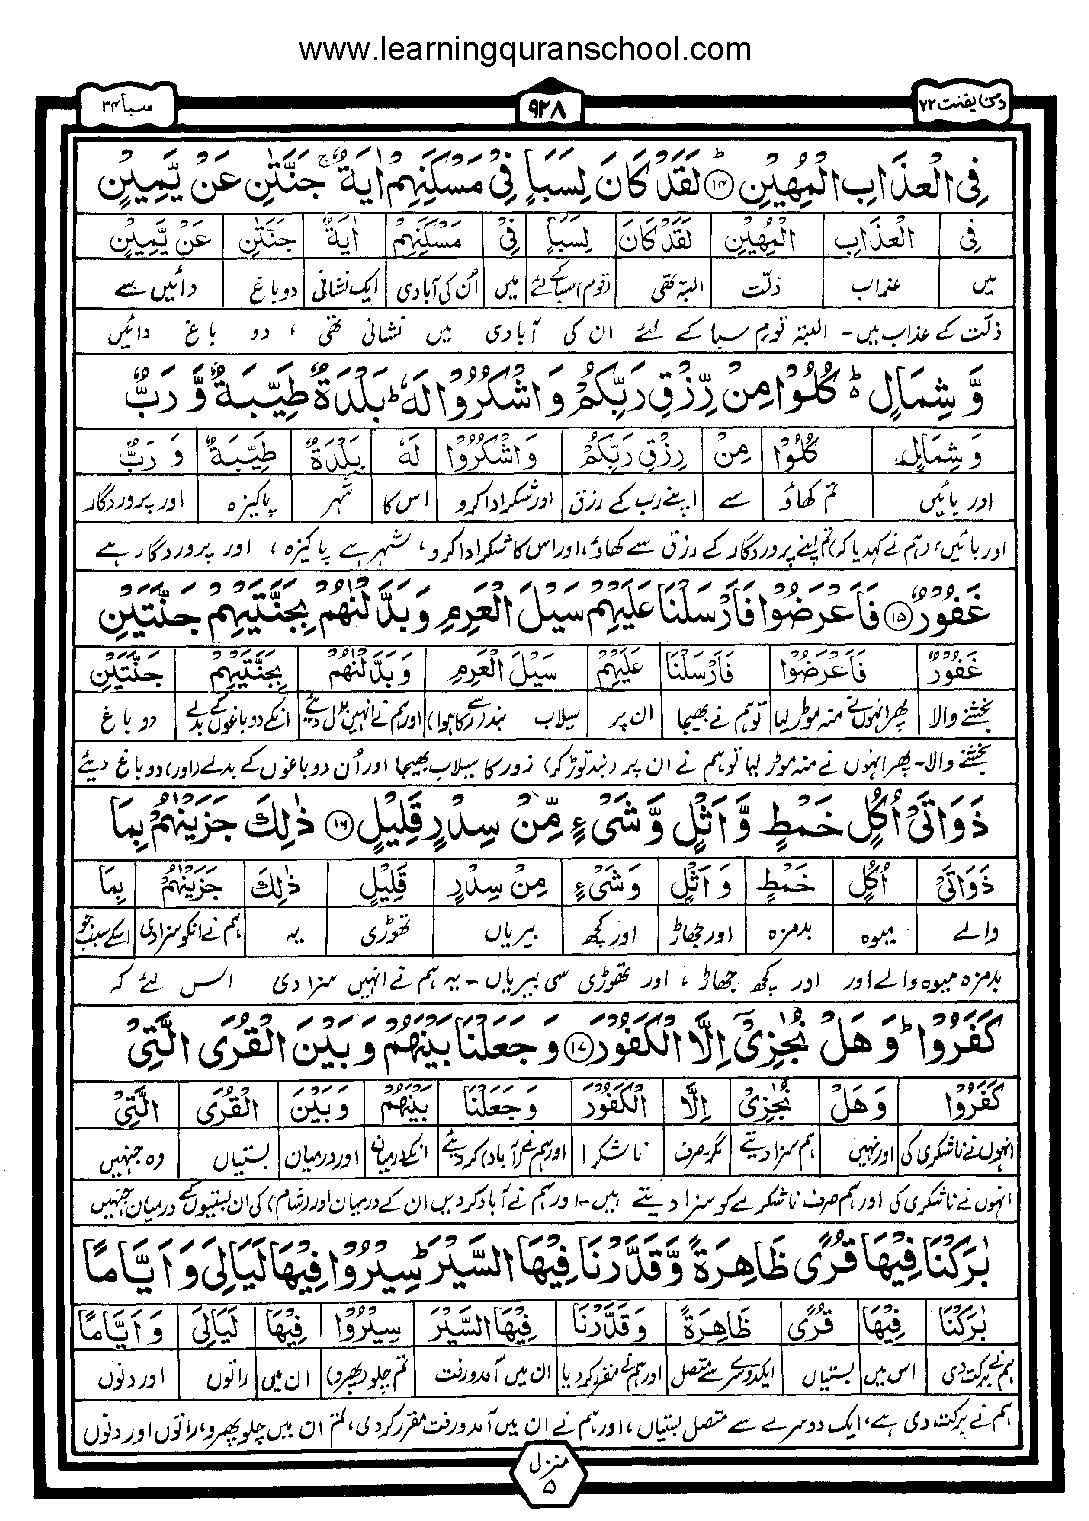 www.learningquranschool.com
ومن یقنت ۲۲
۹۲۸
سبا ۳۴
فِی الْعَذَابِ الْمُهِیْنِ ۱۴ لَقَدْ كَانَ لِسَبَاٍ فِیْ مَسْكَنِهِمْ اٰیَةٌ ۚ جَنَّتٰنِ عَنْ یَّمِیْنٍ
فِی الْعَذَابِ الْمُهِیْنِ لَقَدْ كَانَ لِسَبَاٍ فِیْ مَسْكَنِهِمْ اٰیَةٌ جَنَّتٰنِ عَنْ یَّمِیْنٍ
میں عذاب ذلت البتہ تھی (قوم) سبا کے لئے میں اُن کی آبادی ایک نشانی دو باغ دائیں سے
ذلّت کے عذاب میں - البتہ قومِ سبا کے لئے ان کی آبادی میں نشانی تھی ، دو باغ دائیں
وَّ شِمَالٍ ؕ كُلُوْا مِنْ رِّزْقِ رَبِّكُمْ وَ اشْكُرُوْا لَهٗ ؕ بَلْدَةٌ طَیِّبَةٌ وَّ رَبٌّ
وَ شِمَالٍ كُلُوْا مِنْ رِزْقِ رَبِّكُمْ وَ اشْكُرُوْا لَهٗ بَلْدَةٌ طَیِّبَةٌ وَ رَبٌّ
اور بائیں تم کھاؤ سے اپنے رب کے رزق اور شکر ادا کرو اس کا شہر پاکیزہ اور پروردگار
اور بائیں، (ہم نے کہدیا کہ) تم اپنے پروردگار کے رزق سے کھاؤ، اور اس کا شکر ادا کرو، شہر ہے پاکیزہ ، اور پروردگار ہے
غَفُوْرٌ ۱۵ فَاَعْرَضُوْا فَاَرْسَلْنَا عَلَیْهِمْ سَیْلَ الْعَرِمِ وَ بَدَّلْنٰهُمْ بِجَنَّتَیْهِمْ جَنَّتَیْنِ
غَفُوْرٌ فَاَعْرَضُوْا فَاَرْسَلْنَا عَلَیْهِمْ سَیْلَ الْعَرِمِ وَ بَدَّلْنٰهُمْ بِجَنَّتَیْهِمْ جَنَّتَیْنِ
بخشنے والا پھر انہوں نے منہ موڑ لیا تو ہم نے بھیجا ان پر سیلاب بند سے (رکا ہوا) اور ہم نے انہیں بدل دیئے انکے دو باغوں کے بدلے دو باغ
بخشنے والا - پھر انہوں نے منہ موڑ لیا تو ہم نے ان پر (بند توڑ کر) زور کا سیلاب بھیجا اور اُن دو باغوں کے بدلے (اور) دو باغ دیئے
ذَوَاتَیْ اُكُلٍ خَمْطٍ وَّ اَثْلٍ وَّ شَیْءٍ مِّنْ سِدْرٍ قَلِیْلٍ ۱۶ ذٰلِكَ جَزَیْنٰهُمْ بِمَا
ذَوَاتَیْ اُكُلٍ خَمْطٍ وَ اَثْلٍ وَ شَیْءٍ مِنْ سِدْرٍ قَلِیْلٍ ذٰلِكَ جَزَیْنٰهُمْ بِمَا
والے میوہ بدمزہ اور جھاڑ اور کچھ بیریاں تھوڑی یہ ہم نے انکو سزا دی اسکے سبب جو
بدمزہ میوہ والے اور اور کچھ جھاڑ ، اور تھوڑی سی بیریاں - یہ ہم نے انہیں سزا دی اس لئے کہ
كَفَرُوْا ؕ وَ هَلْ نُجٰزِیْۤ اِلَّا الْكَفُوْرَ ۱۷ وَ جَعَلْنَا بَیْنَهُمْ وَ بَیْنَ الْقُرَی الَّتِیْ
كَفَرُوْا وَ هَلْ نُجٰزِیْ اِلَّا الْكَفُوْرَ وَ جَعَلْنَا بَیْنَهُمْ وَ بَیْنَ الْقُرَی الَّتِیْ
انہوں نے ناشکری کی اور نہیں ہم سزا دیتے مگر صرف ناشکرا اور ہم نے (آباد) کر دیئے انکے درمیان اور درمیان بستیاں وہ جنہیں
انہوں نے ناشکری کی اور ہم صرف ناشکرے کو سزا دیتے ہیں - اور ہم نے آباد کر دیں ان کے درمیان اور (شام) کی ان بستیوں کے درمیان جنہیں
بٰرَكْنَا فِیْهَا قُرًی ظَاهِرَةً وَّ قَدَّرْنَا فِیْهَا السَّیْرَ ؕ سِیْرُوْا فِیْهَا لَیَالِیَ وَ اَیَّامًا
بٰرَكْنَا فِیْهَا قُرًی ظَاهِرَةً وَ قَدَّرْنَا فِیْهَا السَّیْرَ سِیْرُوْا فِیْهَا لَیَالِیَ وَ اَیَّامًا
ہم نے برکت دی اس میں بستیاں ایک دوسرے سے متصل اور ہم نے مقرر کر دیا ان میں آمدورفت تم چلو (پھرو) ان میں راتوں اور دنوں
ہم نے برکت دی ہے، ایک دوسرے سے متصل بستیاں ، اور ہم نے ان میں آمدورفت مقرر کر دی، تم ان میں چلو پھرو، راتوں اور دنوں
منزل ۵